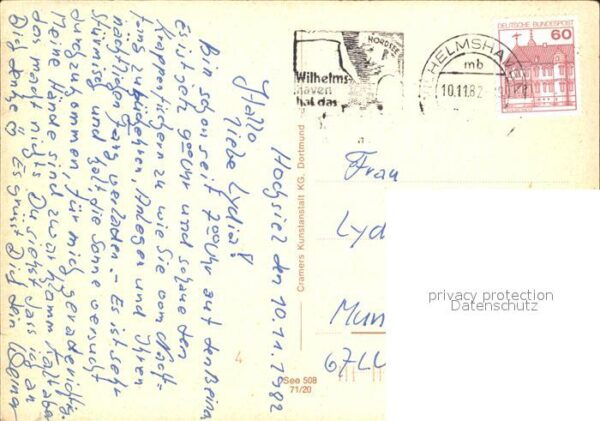 Hooksiel den 10.11.1982
Hallo
liebe Lydia!
Bin schon seit 7 00 Uhr auf den Beinen
Es ist jetzt 9 00 Uhr und schaue den
Krappenfischern zu wie Sie vom Nach-
fang zurückkehren, Anlegen und Ihren
nächtlichen Fang verladen. - Es ist sehr
stürmisch und kalt, die Sonne versucht
durchzukommen, für mich gerade richtig.
Meine Hände sind zwar klamm Kalt aber
das macht nichts Du siehst dass ich an
Dich denke. Es grüsst Dich Dein
NORDSEE
Wilhelms-
haven
hat das
WILHELMSHAVEN
mb
10.11.82
DEUTSCHE BUNDESPOST
60
Frau
Lyd
Mün
67
Cramers Kunstanstalt KG. Dortmund
4
See 508
71/20
privacy protection
Datenschutz